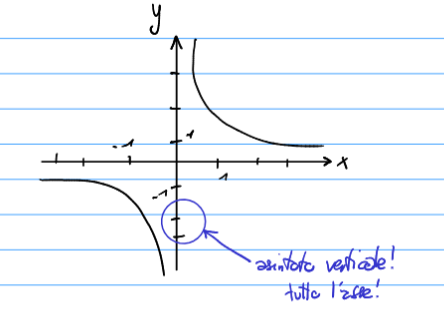 y
-1
1
x
1
-1
asintoto verticale!
tutto l'asse!